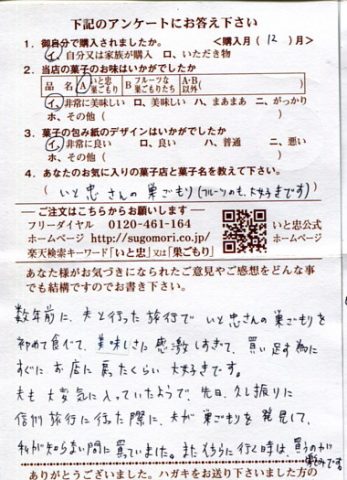 下記のアンケートにお答え下さい
1. 御自分で購入されましたか。 <購入月(12)月>
イ、自分又は家族が購入 ロ、いただき物
2. 当店の菓子のお味はいかがでしたか
品 名 A いと忠巣ごもり B フルーツな巣ごもりたち A・B以外( )
イ、非常に美味しい ロ、美味しい ハ、まあまあ ニ、がっかり
ホ、その他( )
3. 菓子の包み紙のデザインはいかがでしたか
イ、非常に良い ロ、良い ハ、普通 ニ、悪い
ホ、その他( )
4. あなたのお気に入りの菓子店と菓子名を教えて下さい。
(いと忠さんの巣ごもり(フルーツのも、大好きです))
ご注文はこちらからお願いします
フリーダイヤル 0120-461-164
ホームページ http://sugomori.co.jp/
楽天検索キーワード「いと忠」又は「巣ごもり」
いと忠公式
ホームページ
あなた様がお気づきになられたご意見やご感想をどんな事
でも結構ですのでお書き下さい。
数年前に、夫と行った旅行でいと忠さんの巣ごもりを
初めて食べて、美味しさに感激しすぎて、買い足す為に
すぐにお店に戻ったくらい大好きです。
夫も大変気に入っていたようで、先日、久し振りに
信州旅行に行った際に、夫が巣ごもりを発見して、
私が知らない間に買っていました。またそちらに行く時は、買うのが
楽しみです
ありがとうございました。ハガキをお送り下さいました方の